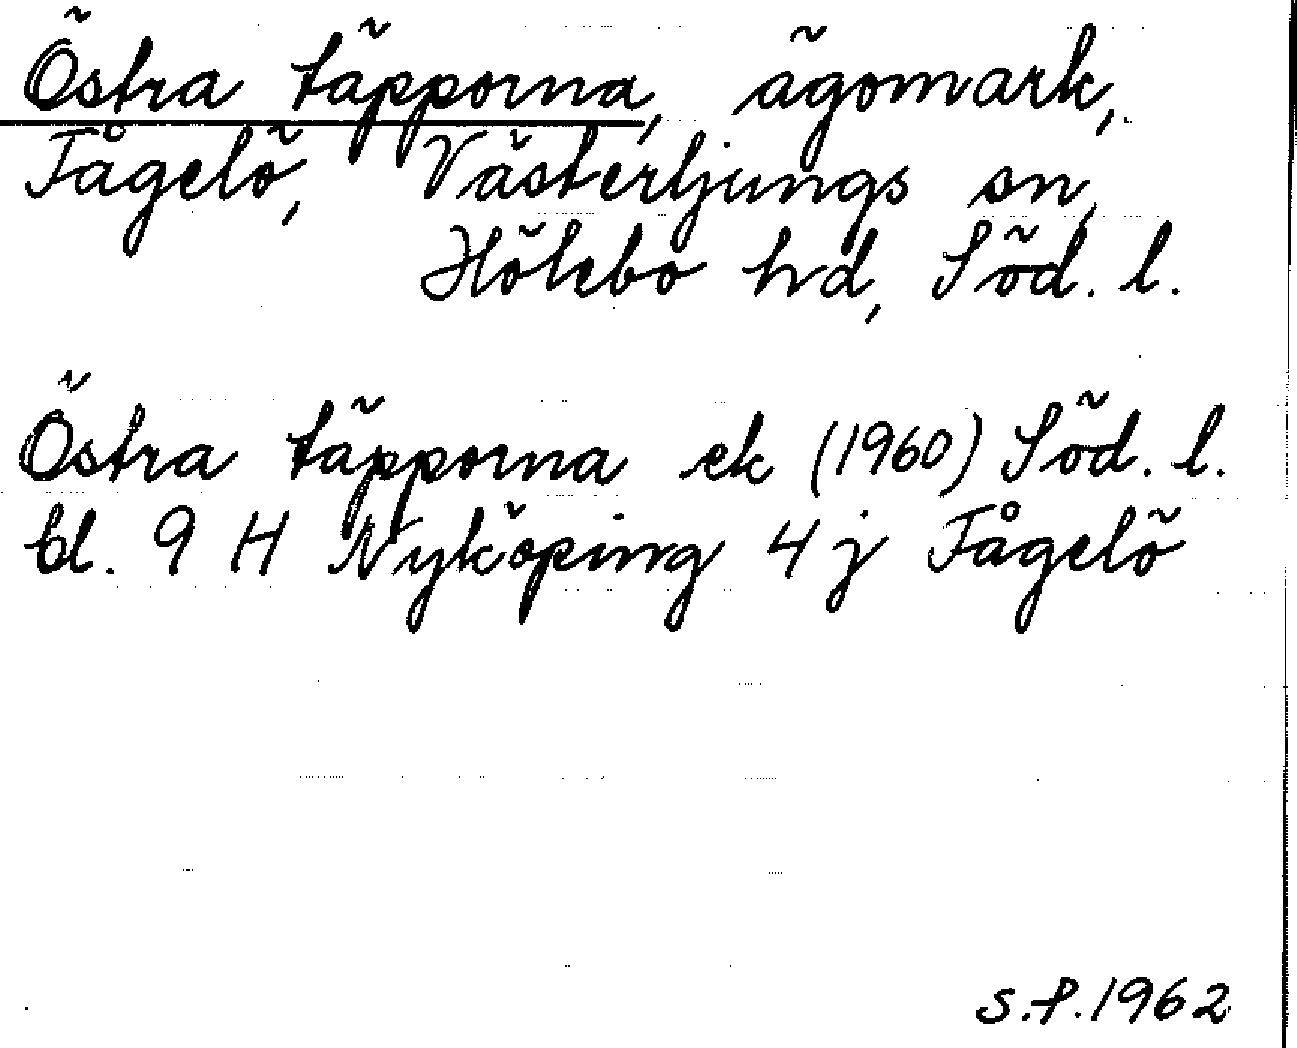 Östra täpporna, ägomark,
Fågelö, Västerljungs sn,
Hölebo hd, Söd. l.
Östra täpporna ek (1960) Söd. l.
bl. 9 H Nyköping 4 j Fågelö
S.P. 1962